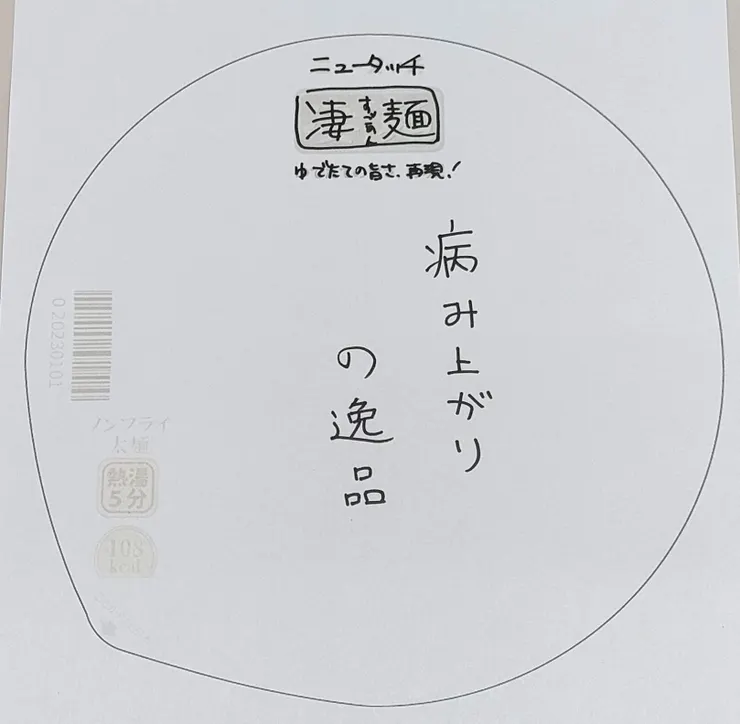 ニュータッチ
凄麺
すごめん
ゆでたての旨さ、再現!
病み上がり
の逸品
020230101
ノンフライ
太麺
熱湯
5分
108
kcal